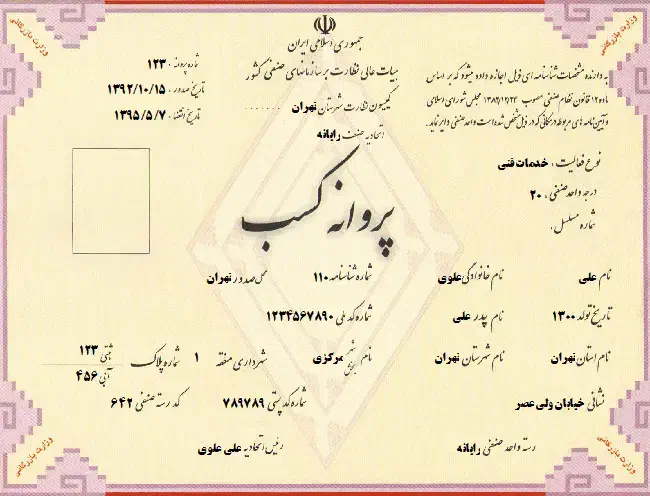 وزارت بازرگانی
وزارت بازرگانی
جمهوری اسلامی ایران
هیات عالی نظارت بر سازمانهای صنفی کشور
کمیسیون نظارت شهرستان تهران . . . . . . .
اتحادیه صنف رایانه
شماره پروانه . ۱۲۳
تاریخ صدور . ۱۳۹۲/۱۰/۱۵
تاریخ انقضاء . ۱۳۹۵/۵/۷
به دارنده مشخصات شناسنامه ای ذیل اجازه داده میشود که بر اساس
ماده ۱۲ قانون نظام صنفی مصوب ۱۳۸۲/۱۲/۲۴ مجلس شورای اسلامی
و آیین نامه های مربوطه در مکانی که در ذیل مشخص شده است واحد صنفی دایر نماید.
نوع فعالیت . خدمات فنی
درجه واحد صنفی . ۲۰
شماره مسلسل .
پروانه کسب
نام علی نام خانوادگی علوی شماره شناسنامه ۱۱۰ محل صدور تهران
تاریخ تولد ۱۳۰۰ نام پدر علی شماره کد ملی ۱۲۳۴۵۶۷۸۹۰
نام استان تهران نام شهرستان تهران نام شهر بخش مرکزی شهرداری منطقه ۱ شماره پلاک ثبتی ۱۲۳ آبی ۴۵۶
نشانی خیابان ولی عصر شماره کد پستی ۷۸۹۷۸۹ کد رسته صنفی ۶۴۲
رسته واحد صنفی رایانه رئیس اتحادیه علی علوی
وزارت بازرگانی
وزارت بازرگانی